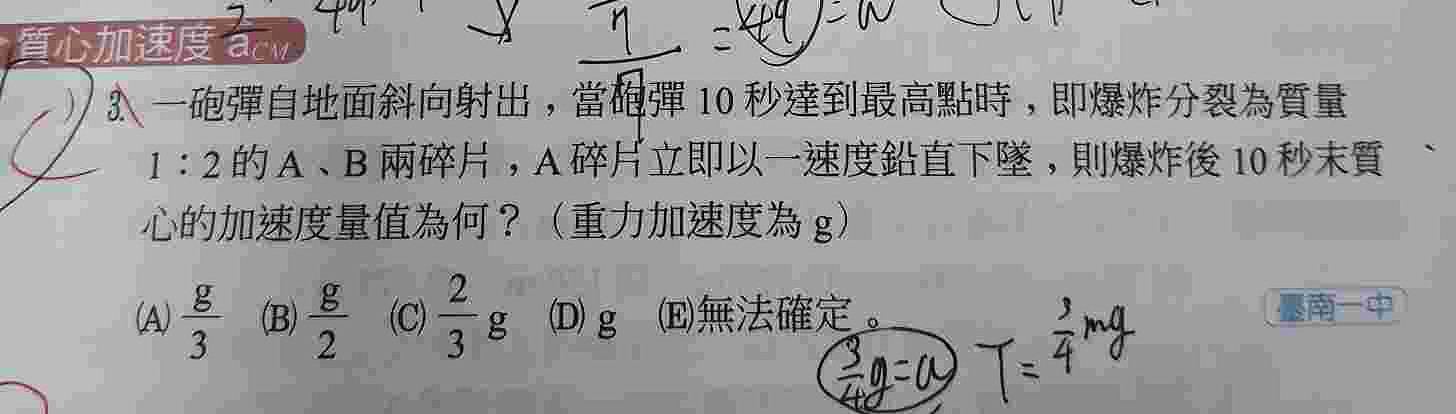 質心加速度 aCM
3. 一砲彈自地面斜向射出,當砲彈 10 秒達到最高點時,即爆炸分裂為質量
1:2 的 A、B 兩碎片,A 碎片立即以一速度鉛直下墜,則爆炸後 10 秒末質
心的加速度量值為何?(重力加速度為 g)
(A) g/3 (B) g/2 (C) 2/3 g (D) g (E)無法確定。
臺南一中
3/4 g=a T= 3/4 mg